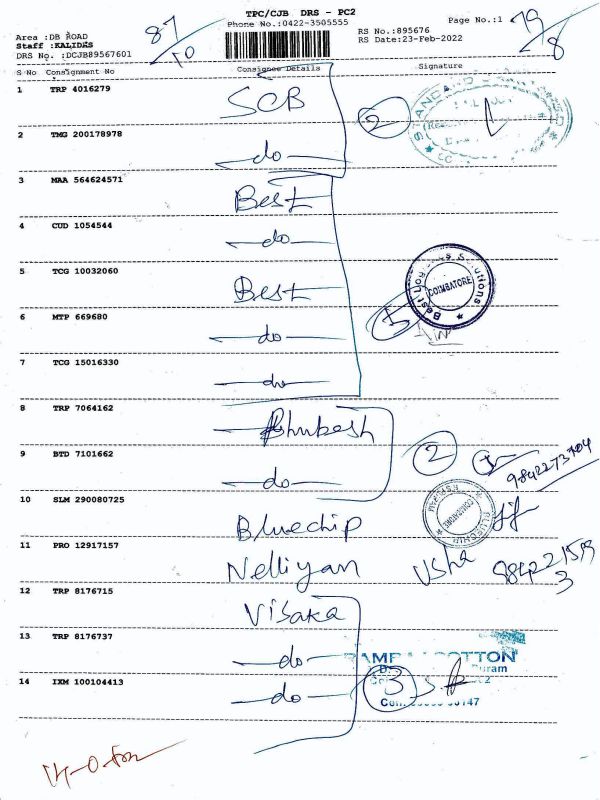 TPC/CJB DRS - PC2
Phone No.:0422-3505555
Page No.:1
87/10
79/8
Area :DB ROAD
Staff :KALIDAS
DRS No. :DCJB89567601
RS No.:895676
RS Date:23-Feb-2022
S No Consignment No Consignee Details Signature
1 TRP 4016279 SCB
2 TMG 200178978 do
2
3 MAA 564624571 Best
4 CUD 1054544 do
5 TCG 10032060 Best
COIMBATORE
6 MTP 669680 do
5
7 TCG 15016330 do
8 TRP 7064162 Bhubesh
9 BTD 7101662 do
2
10 SLM 290080725 Bluechip
11 PRO 12917157 Nelliyan Usha
12 TRP 8176715 Visaka
13 TRP 8176737 do
COTTON
14 IXM 100104413 do
3